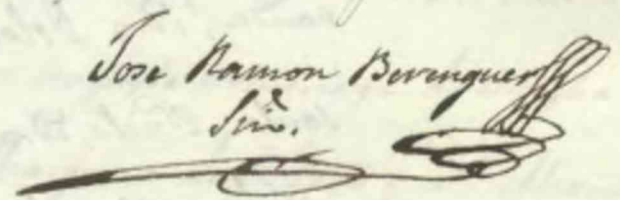 Jose Ramon Berenguer
Srio.